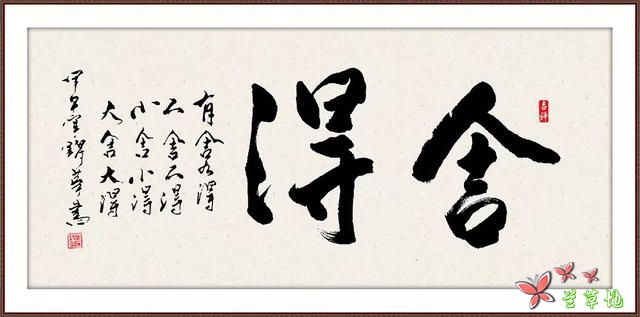 舍得
吉祥
有舍有得
不舍不得
小舍小得
大舍大得
甲午 華書
兰草地